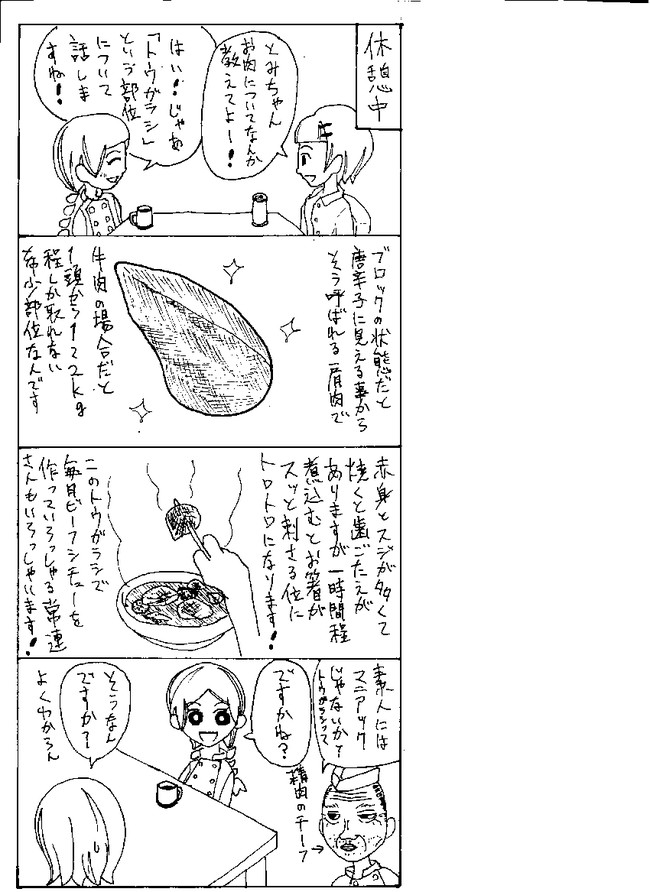 休憩中
とみちゃん
お肉についてなんか
教えてよー!
はい!じゃあ
「トウガラシ」
という部位
について
話しま
すね!
ブロックの状態だと
唐辛子に見える事から
そう呼ばれる肩肉で
牛肉の場合だと
1頭から1〜2kg
程しか取れない
希少部位なんです
赤身とスジが多くて
焼くと歯ごたえが
ありますが一時間程
煮込むとお箸が
スッと刺さる位に
トロトロになります!
このトウガラシで
毎月ビーフシチューを
作っていらっしゃる常連
さんもいらっしゃいます!
素人には
マニアック
じゃないか?
トウガラシって
精肉のチーフ
→
ですかね?
そうなん
ですか?
よくわからん